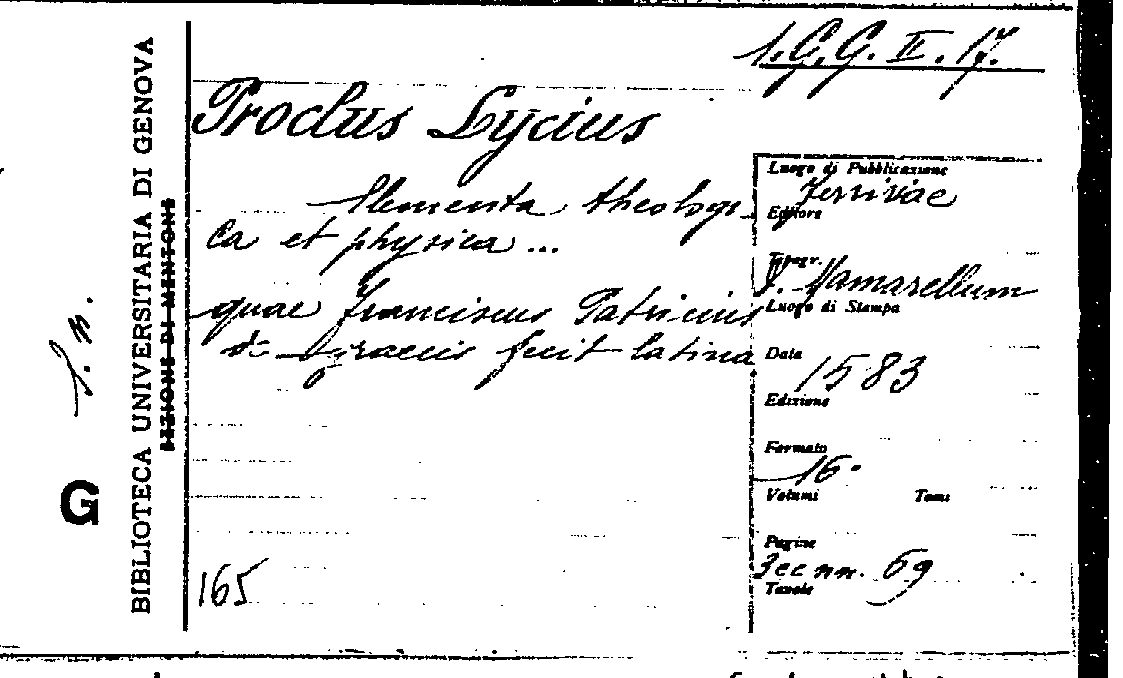 1.G.G. II. 17.
Proclus Lycius
Elementa theologi-
ca et physica ...
quae Franciscus Patricius
de graecis fecit latina
165
Luogo di Pubblicazione
Ferrivae
Editore
Topogr.
D. Mamarellum
Luogo di Stampa
Data
1583
Edizione
Formato
16.
Volumi Tomi
Pagine
3ec nn. 69
Tavole
BIBLIOTECA UNIVERSITARIA DI GENOVA
SEZIONE DI MENTONE
G